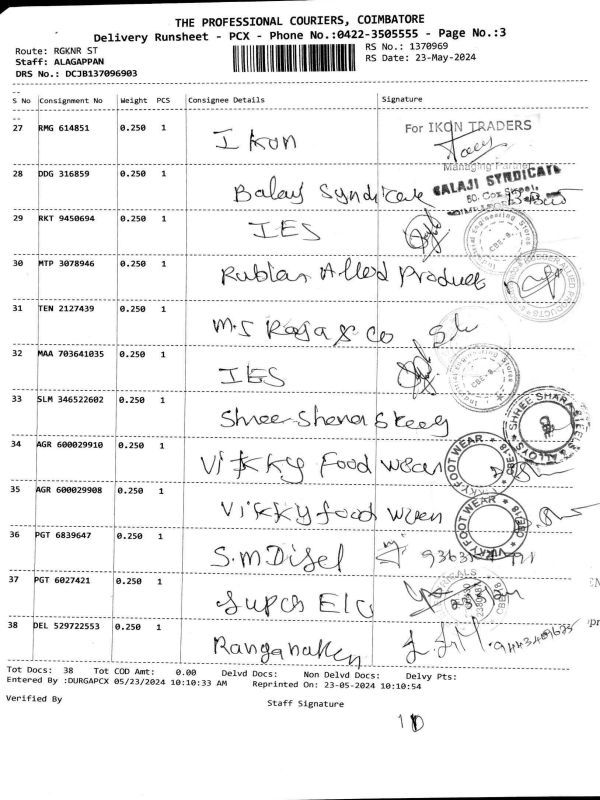 THE PROFESSIONAL COURIERS, COIMBATORE
Delivery Runsheet - PCX - Phone No.:0422-3505555 - Page No.:3
Route: RGKNR ST
RS No.: 1370969
Staff: ALAGAPPAN
RS Date: 23-May-2024
DRS No.: DCJB137096903
S No Consignment No Weight PCS Consignee Details Signature
27 RMG 614851 0.250 1 Ikon For IKON TRADERS
Managing Partner
28 DDG 316859 0.250 1 Balaji Syndicate BALAJI SYNDICATE
29 RKT 9450694 0.250 1 IES Engineering Stores CBE-9
30 MTP 3078946 0.250 1 Allod Product
31 TEN 2127439 0.250 1 M.S Raja & Co
32 MAA 703641035 0.250 1 IES Engineering Stores CBE-9
33 SLM 346522602 0.250 1 Shree Shara Steels SHREE SHARA STEELS & ALLOYS
34 AGR 600029910 0.250 1 Vikky Food wear VIKKY FOOT WEAR CBE-18
35 AGR 600029908 0.250 1 Vikky food wear VIKKY FOOT WEAR CBE-18
36 PGT 6839647 0.250 1 S.M Disel
37 PGT 6027421 0.250 1 Super Elc
38 DEL 529722553 0.250 1
Tot Docs: 38 Tot COD Amt: 0.00 Delvd Docs: Non Delvd Docs: Delvy Pts:
Entered By :DURGAPCX 05/23/2024 10:10:33 AM Reprinted On: 23-05-2024 10:10:54
Verified By
Staff Signature